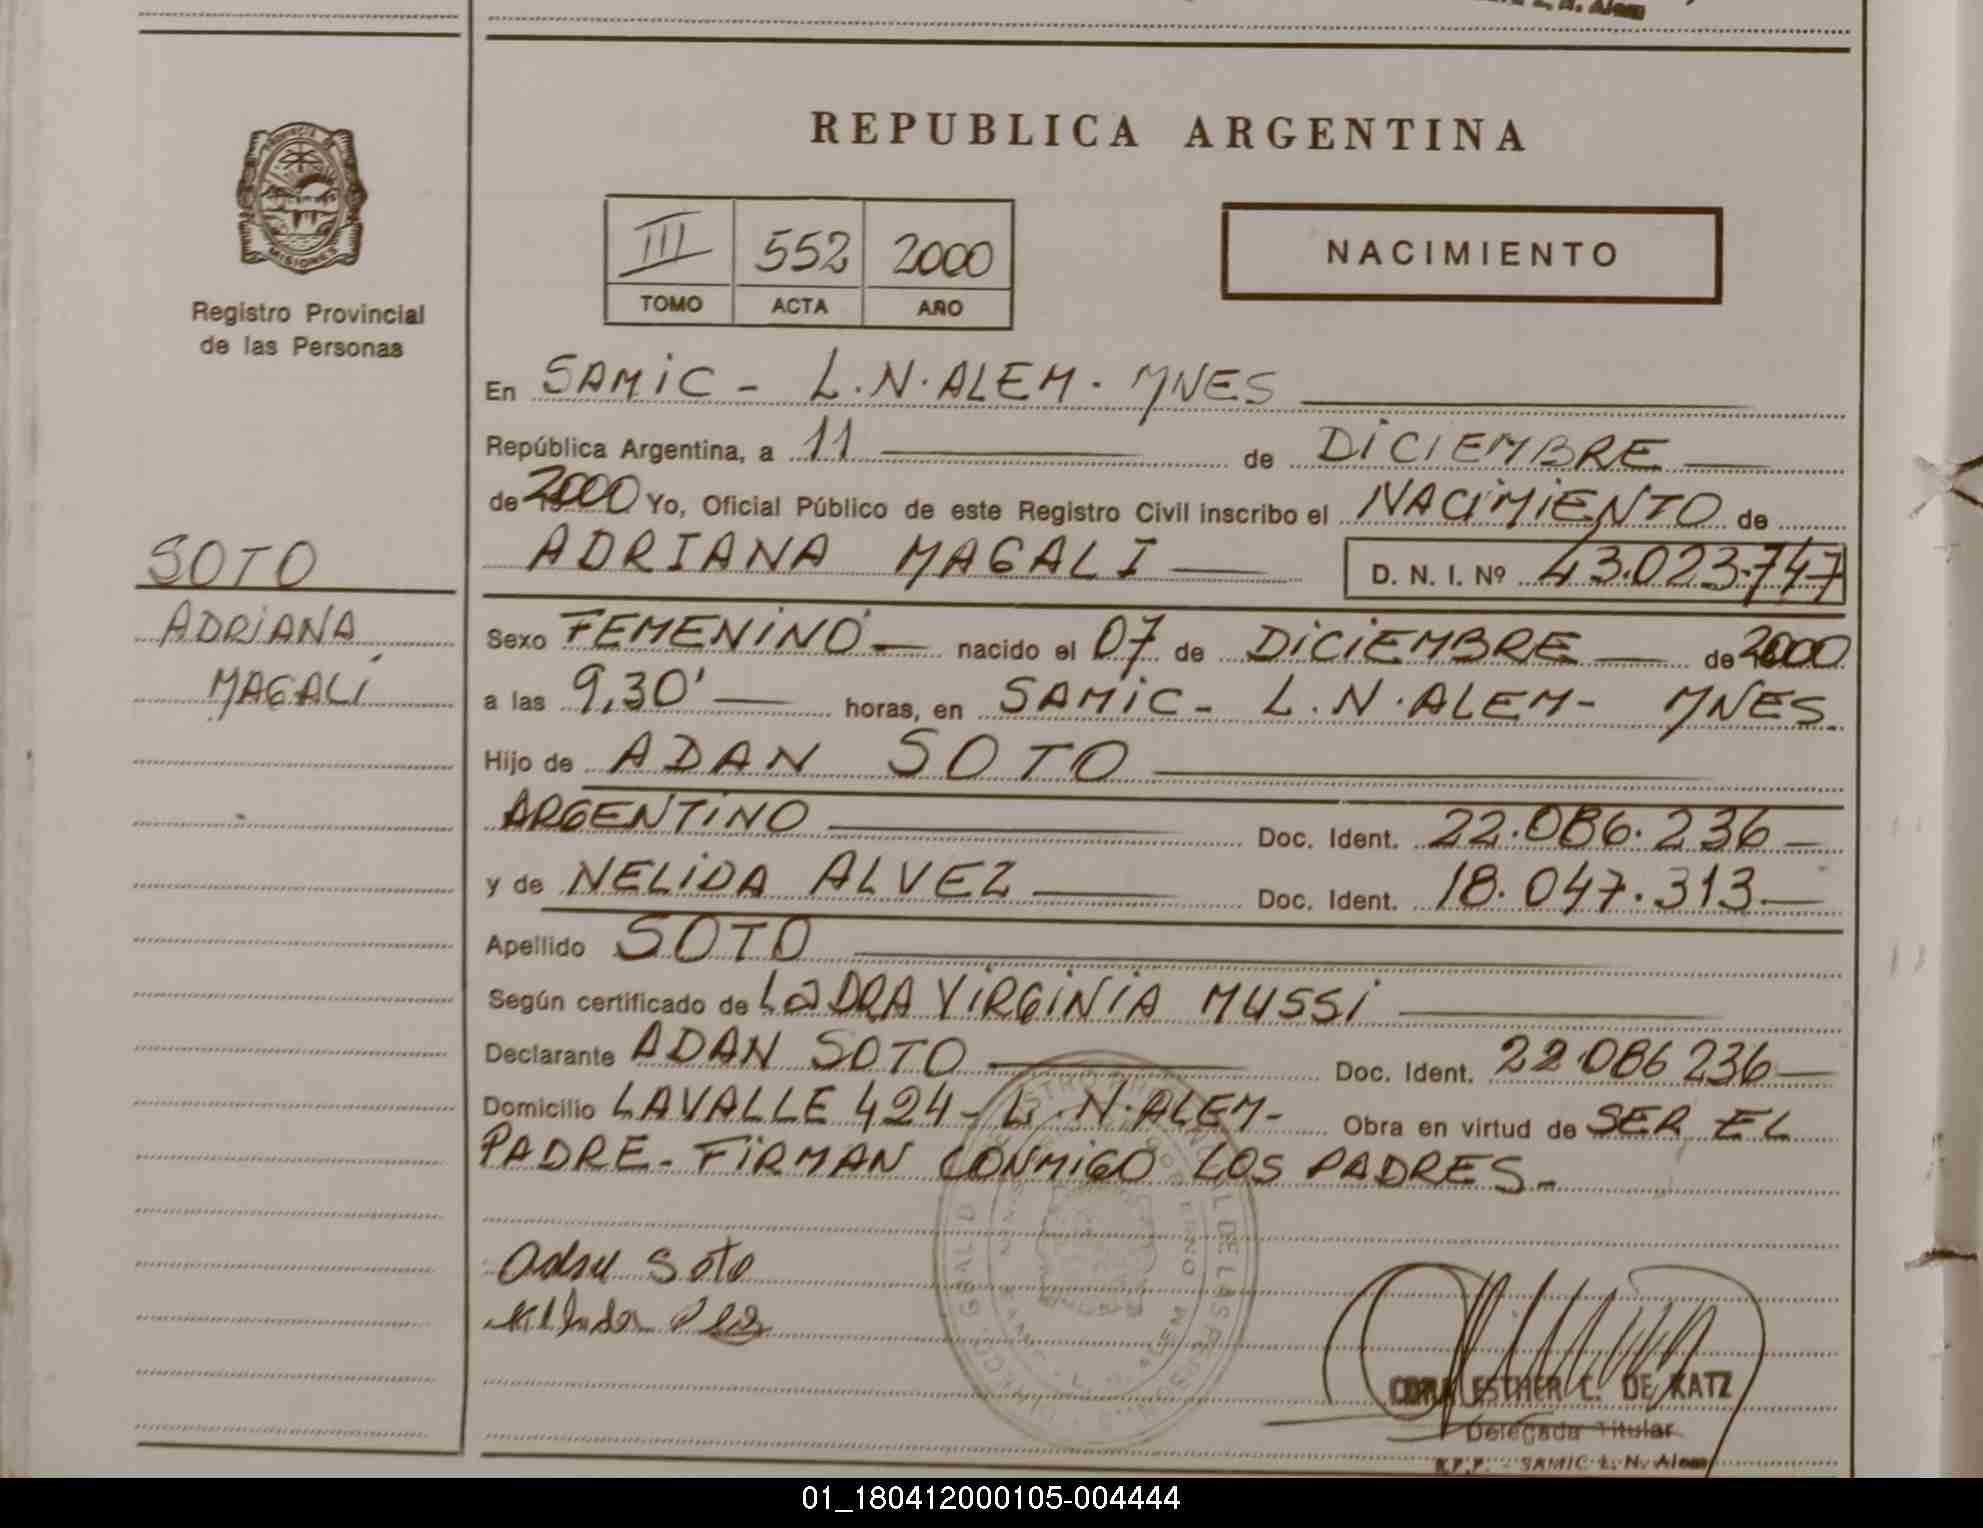 L. N. Alem
REPUBLICA ARGENTINA
III 552 2000
TOMO ACTA AÑO
NACIMIENTO
PROVINCIA DE
MISIONES
Registro Provincial
de las Personas
SOTO
ADRIANA
MAGALI
En SAMIC - L.N. ALEM. MNES
República Argentina, a 11 de DICIEMBRE
de 2000 Yo, Oficial Público de este Registro Civil inscribo el NACIMIENTO de
ADRIANA MAGALI D. N. I. Nº 43.023.747
Sexo FEMENINO nacido el 07 de DICIEMBRE de 2000
a las 9,30' horas, en SAMIC - L.N. ALEM - MNES.
Hijo de ADAN SOTO
ARGENTINO Doc. Ident. 22.086.236
y de NELIDA ALVEZ Doc. Ident. 18.047.313
Apellido SOTO
Según certificado de La DRA VIRGINIA MUSSI
Declarante ADAN SOTO Doc. Ident. 22 086 236
Domicilio LAVALLE 424 - L.N. ALEM - Obra en virtud de SER EL
PADRE - FIRMAN CONMIGO LOS PADRES -
Soto
ESTHER C. DE KATZ
Delegada Titular
SAMIC L. N. Alem
01_180412000105-004444